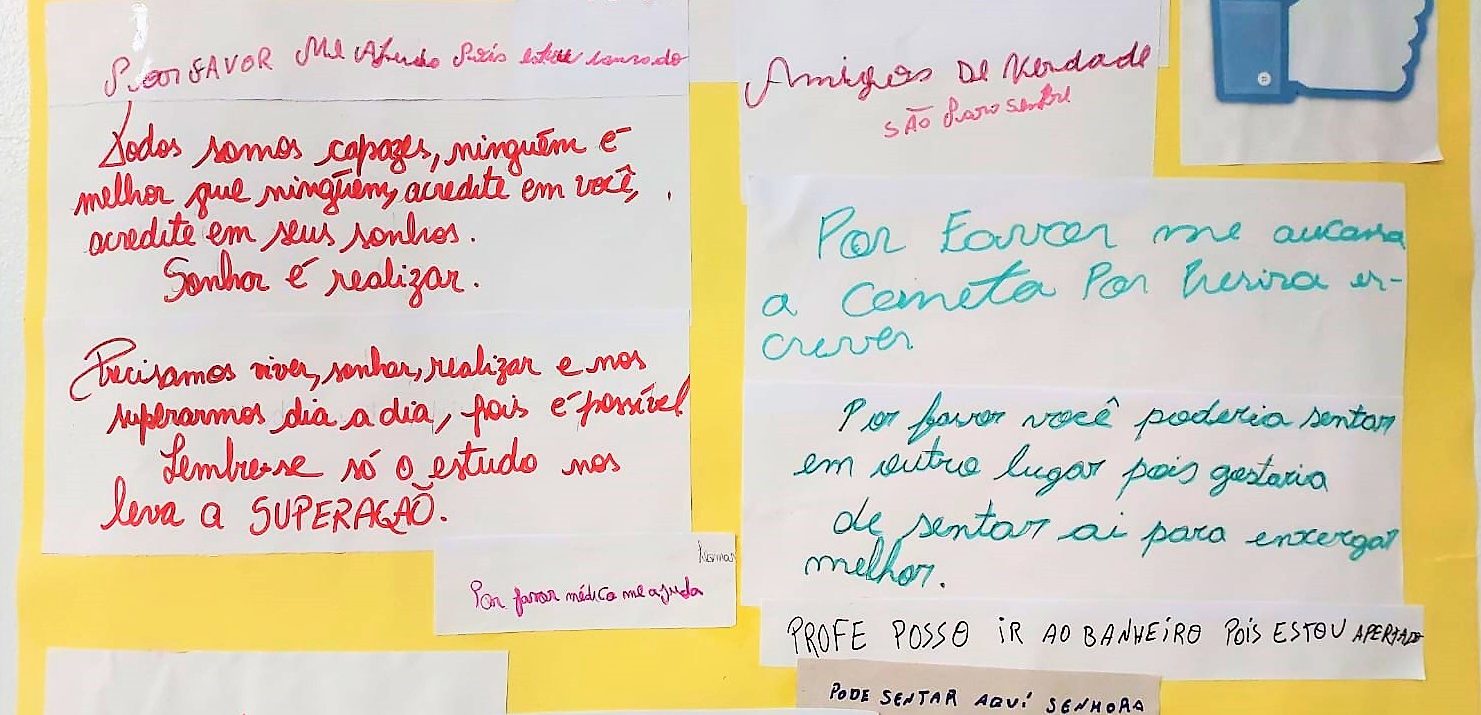 Por FAVOR Me Ajuda Pois estou cansado
Todos somos capazes, ninguém é
melhor que ninguém, acredite em você,
acredite em seus sonhos.
Sonhar é realizar.
Precisamos viver, sonhar, realizar e nos
superarmos dia a dia, pois é possível
Lembre-se só o estudo nos
leva a SUPERAÇÃO.
Por favor médica me ajuda
Amigos De Verdade
SÃO Para sempre
Por Favor me
a Caneta Por
crever
Por favor você poderia sentar
em outro lugar pois gostaria
de sentar ai para enxergar
melhor.
PROFE POSSO IR AO BANHEIRO POIS ESTOU APERTADO
PODE SENTAR AQUÍ SENHORA